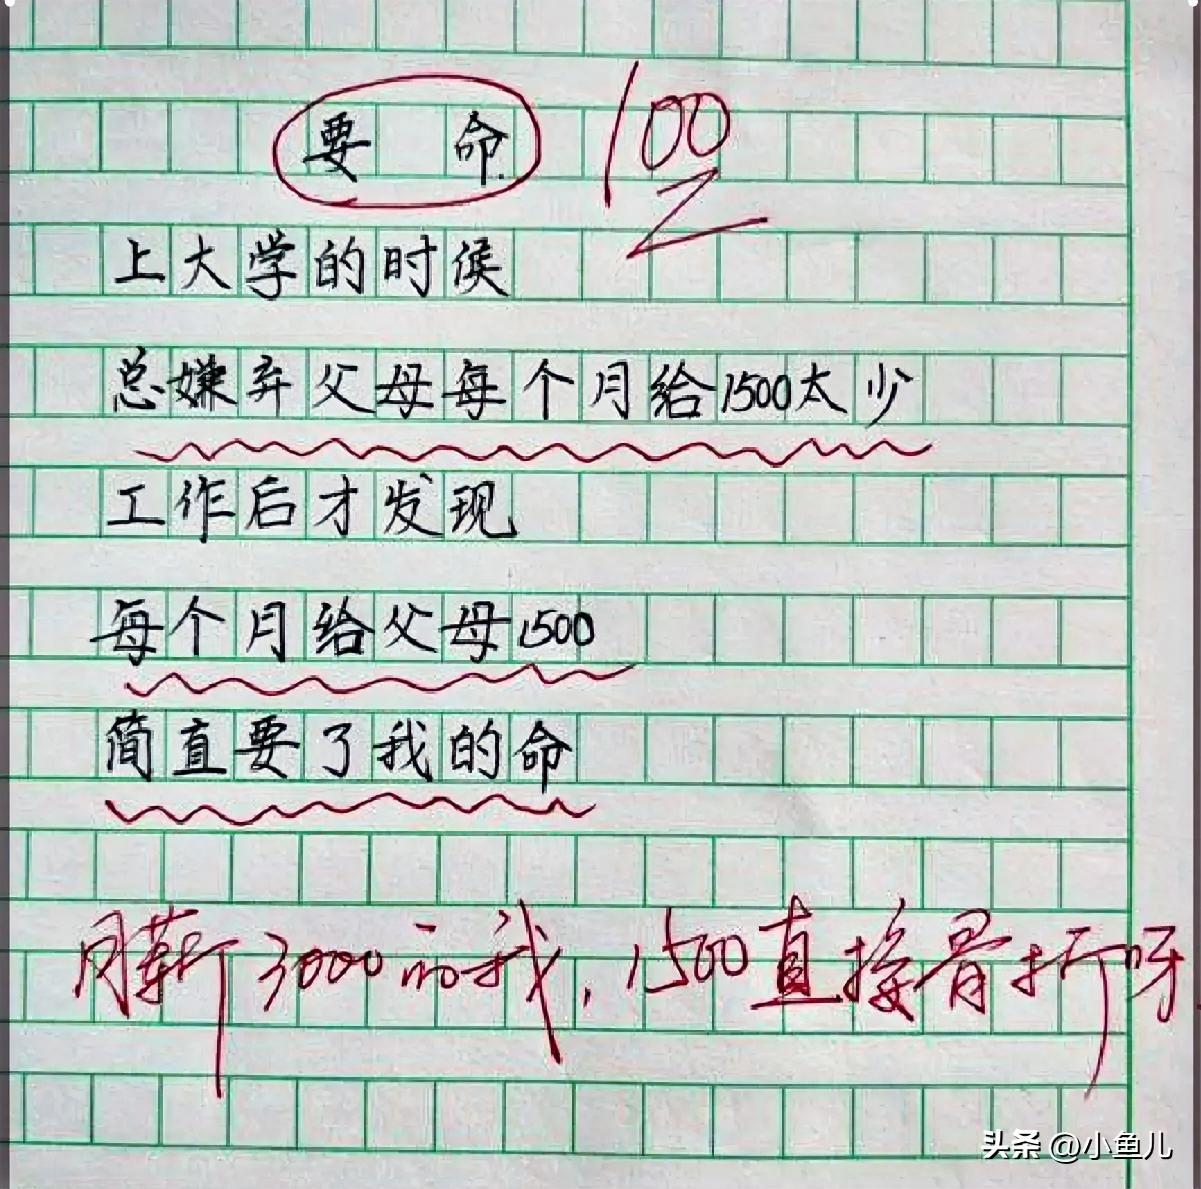 要命
100
上大学的时侯
总嫌弃父母每个月给1500太少
工作后才发现
每个月给父母1500
简直要了我的命
月薪3000的我,1500直接骨折呀
头条 @小鱼儿